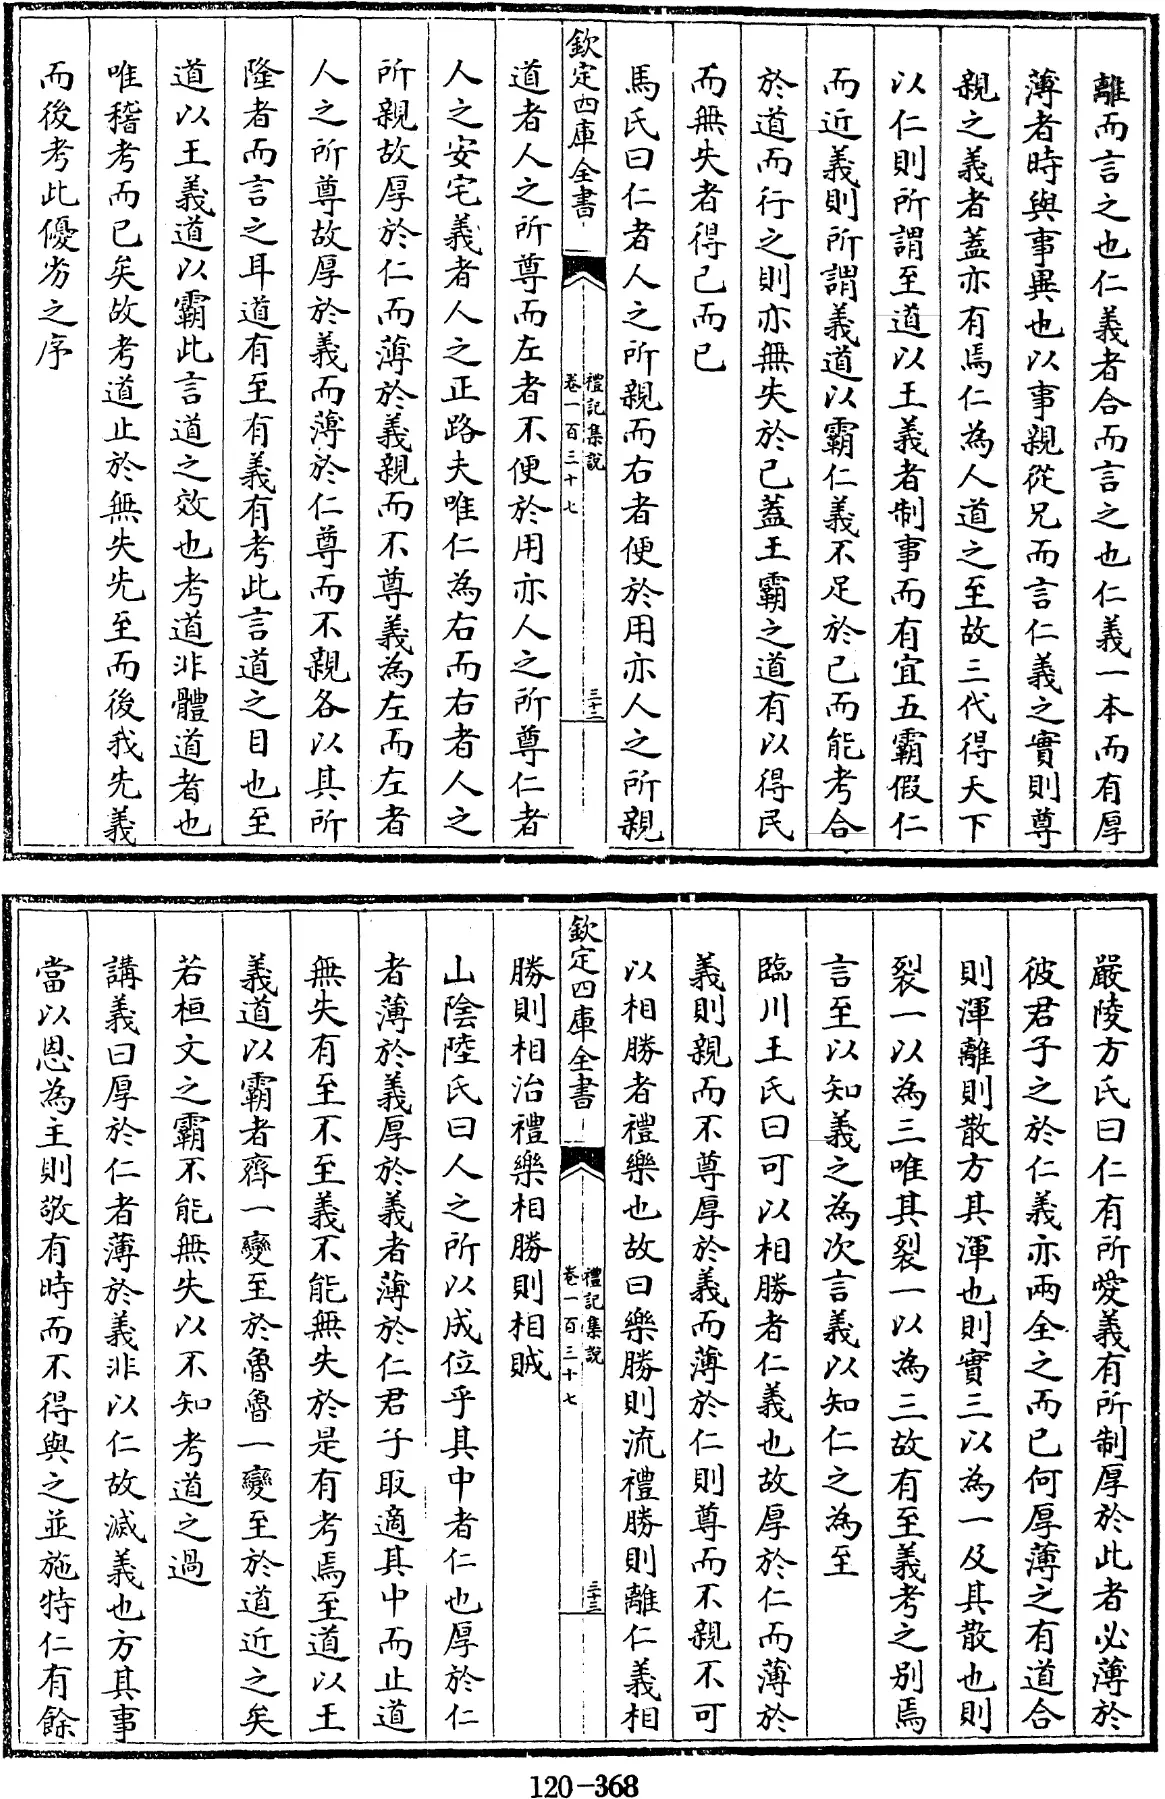 離而言之也仁義者合而言之也仁義一本而有厚
薄者時與事異也以事親從兄而言仁義之實則尊
親之義者蓋亦有焉仁為人道之至故三代得天下
以仁則所謂至道以王義者制事而有宜五霸假仁
而近義則所謂義道以霸仁義不足於己而能考合
於道而行之則亦無失於己蓋王霸之道有以得民
而無失者得己而已
馬氏曰仁者人之所親而右者便於用亦人之所親
欽定四庫全書
禮記集說
卷一百三十七
三十二
道者人之所尊而左者不便於用亦人之所尊仁者
人之安宅義者人之正路夫唯仁為右而右者人之
所親故厚於仁而薄於義親而不尊義為左而左者
人之所尊故厚於義而薄於仁尊而不親各以其所
隆者而言之耳道有至有義有考此言道之目也至
道以王義道以霸此言道之效也考道非體道者也
唯稽考而已矣故考道止於無失先至而後我先義
而後考此優劣之序
嚴陵方氏曰仁有所愛義有所制厚於此者必薄於
彼君子之於仁義亦兩全之而已何厚薄之有道合
則渾離則散方其渾也則實三以為一及其散也則
裂一以為三唯其裂一以為三故有至義考之別焉
言至以知義之為次言義以知仁之為至
臨川王氏曰可以相勝者仁義也故厚於仁而薄於
義則親而不尊厚於義而薄於仁則尊而不親不可
以相勝者禮樂也故曰樂勝則流禮勝則離仁義相
欽定四庫全書
禮記集說
卷一百三十七
三十三
勝則相治禮樂相勝則相賊
山陰陸氏曰人之所以成位乎其中者仁也厚於仁
者薄於義厚於義者薄於仁君子取適其中而止道
無失有至不至義不能無失於是有考焉至道以王
義道以霸者齊一變至於魯魯一變至於道近之矣
若桓文之霸不能無失以不知考道之過
講義曰厚於仁者薄於義非以仁故滅義也方其事
當以恩為主則敬有時而不得與之並施特仁有餘
120-368